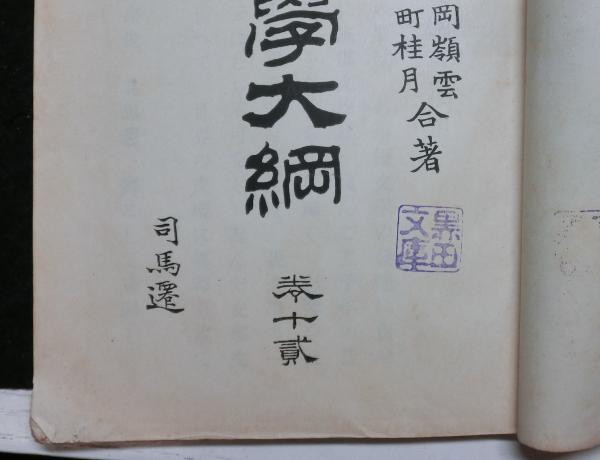 岡嶺雲
町桂月
合著
學大綱
卷十貳
司馬遷
黒田
文庫